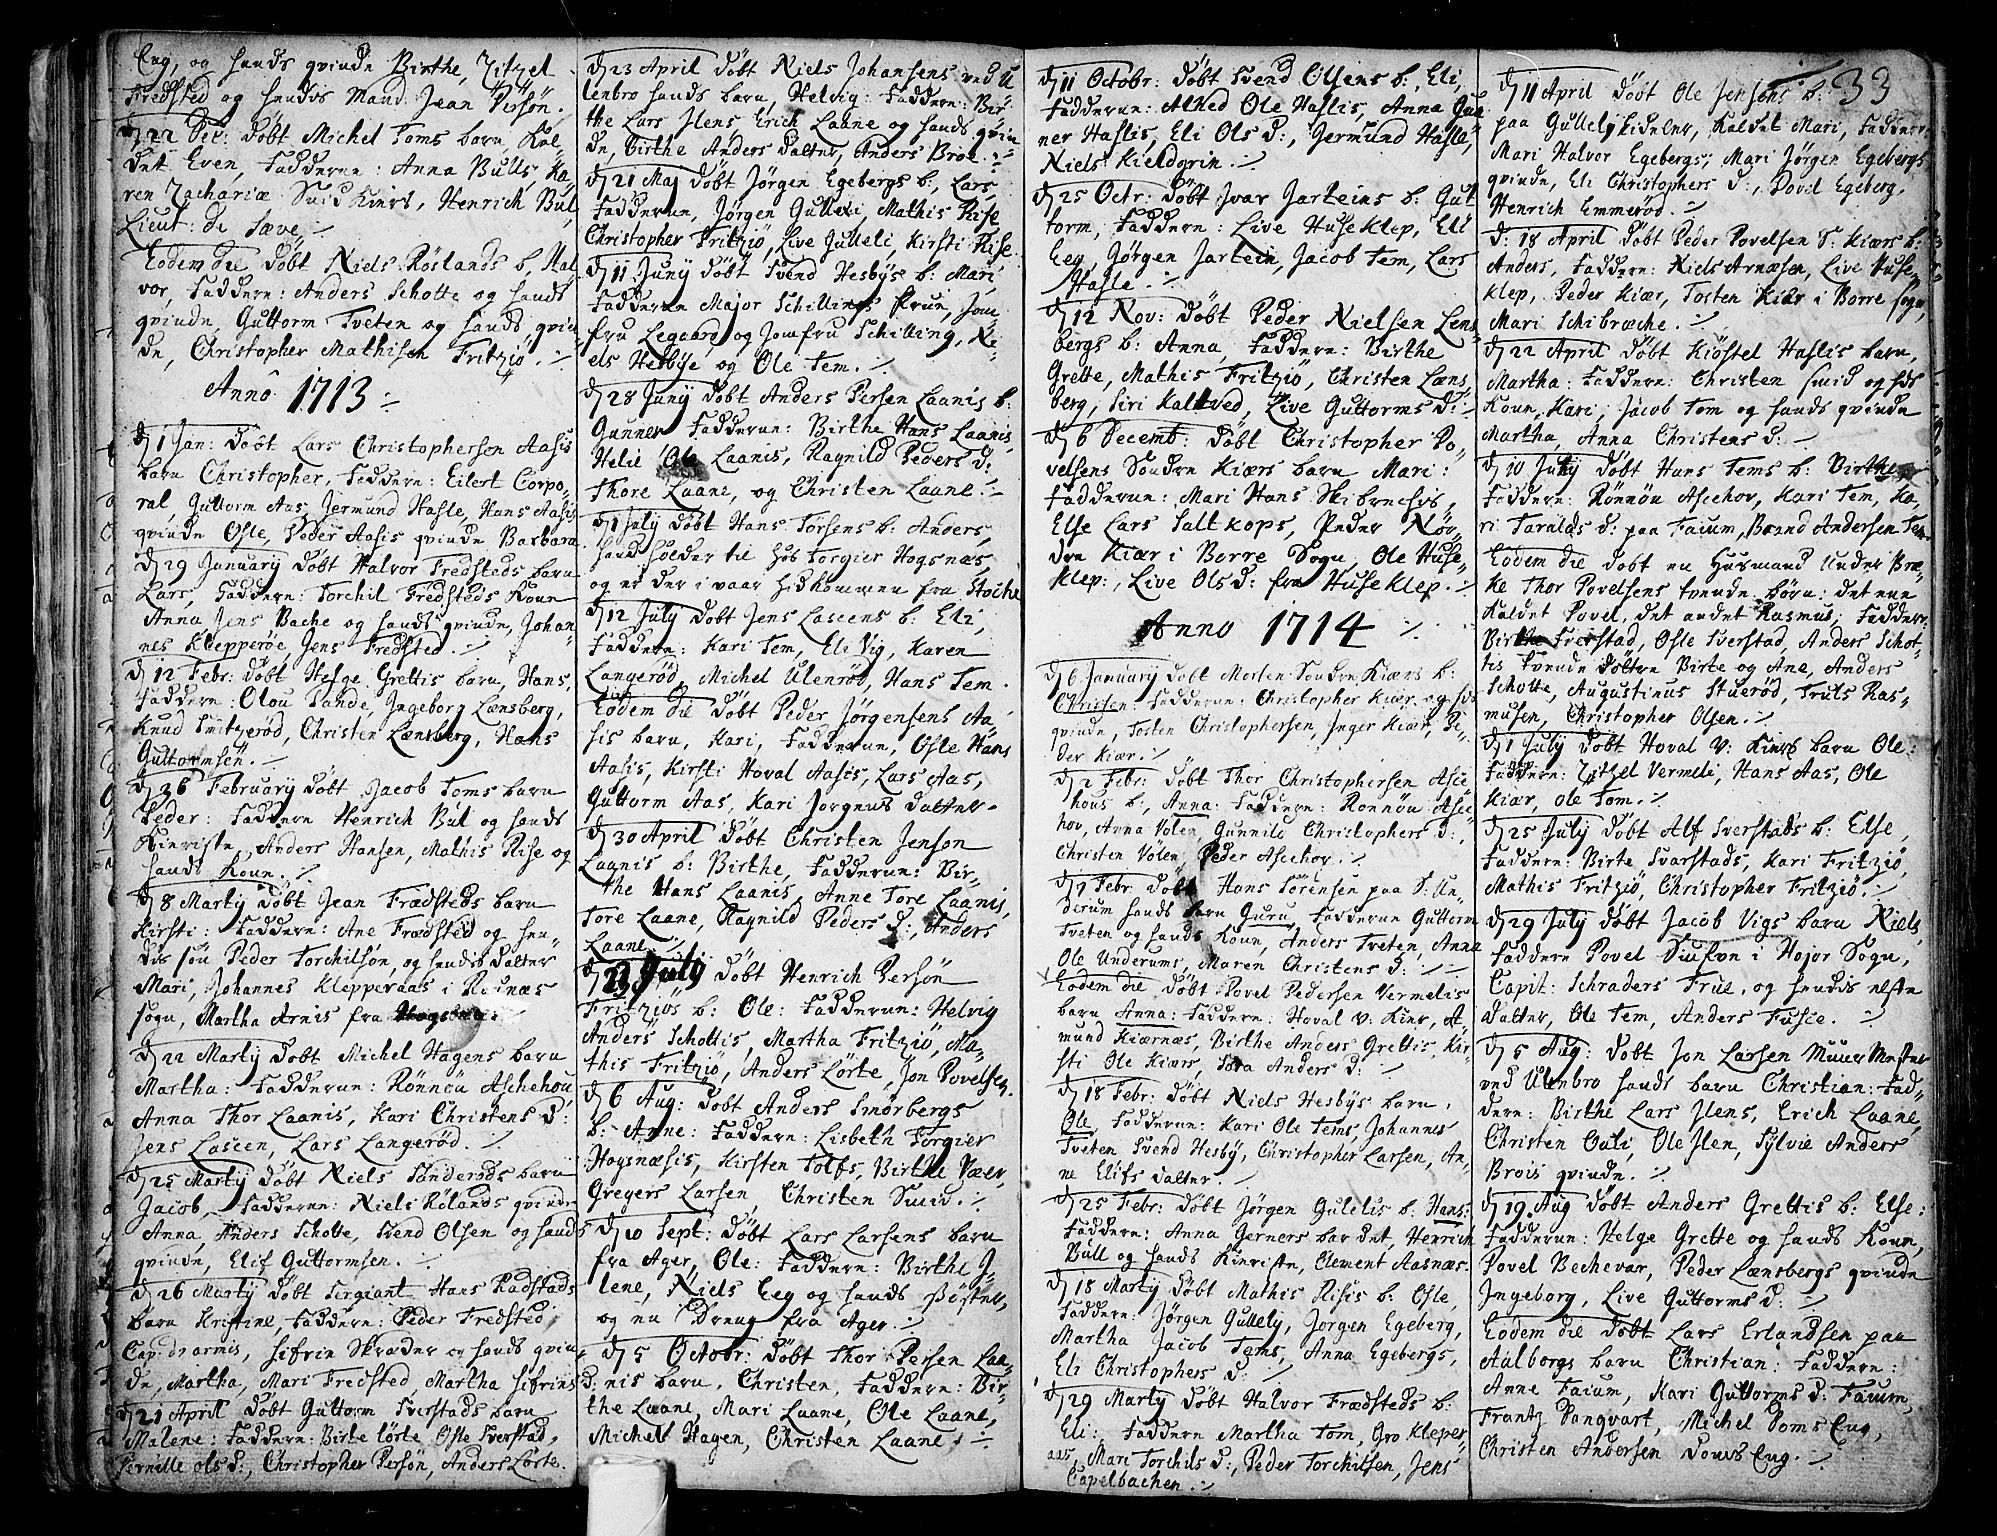 Eng, og hands qvinde Birthe, Zitzel
Fredsted og hendis Mand Jean Persön.
d 22 Dec: döbt Michel Toms barn, Kal-
det Even, Faddern: Anna Bulls Ka-
ren Zachariæ Smid Kiers, Henrich Bul,
Lieut: de Sæve ./.
Eodem die döbt Niels Röslands b, Hal
vor, Faddern: Anders Scholte og hands
qvinde, Guttorm Tveten og hands qvin
de, Christopher Mathisen Fritziö ./.
Anno 1713 ./.
d 1 Jan: döbt Lars Christophersen Aasis
barn Christopher, Faddern: Eilert Corpo-
ral, Guttorm Aas, Jermund Hasle, Hans Aasis
qvinde Osle, Peder Aasis qvinde Barbara
d 29 January döbt Halvor Fredsteds barn
Lars, Faddern: Torchil Fredsteds Koun
Anna Jens Bache og hands qvinde, Johan-
nes Klepperöe, Jens Fredsted ./.
d 12 Febr: döbt Helge Grettis barn, Hans,
Faddern: Olou Pande, Ingeborg Lænsberg,
Knud Smitzeröd, Christen Lænsberg, Hans
Guttormsön ./.
d 26 February döbt Jacob Toms barn
Peder: Faddern Henrich Bul og hands
Kieriste, Anders Hansen, Mathis Rise og
hands Koun ./.
d 8 Marty döbt Jean Frædsteds barn
Kirsti: Faddern: Ane Frædsted og hen-
dis sön Peder Torchilsön, og hendis datter
Mari, Johannes Klepperaas i Rounæs
sogn, Martha Arnis fra
d 22 Marty döbt Michel Hagens barn
Martha: Faddern: Rönnou Aschehou,
Anna Thor Laanis, Kari Christens d:
Jens Lascen, Lars Langeröd ./.
d 25 Marty döbt Niels Sanderöds barn
Jacob, Faddern: Niels Rölands qvinde
Anna, Anders Scholte, Svend Olsen og hands
qvinde, Elif Guttormsen ./.
d 26 Marty döbt Sergiant Hans Radstads
barn Kristine, Faddern: Peder Fredsted,
Cap: dearmis, Sifrin Skrader og hands qvin
de, Martha, Mari Fredsted, Martha Sifrins d:
d 21 April döbt Guttorm Sverstads barn
Malene: Faddern: Birte Lörte, Osle Sverstad,
Pernille Ols d:, Christopher Persön, Anders Lörte.
d 23 April döbt Niels Johansens ved U
lenbro hands barn, Helvig: Faddern: Bir-
the Lars Ilens Erich Laane og hands qvin
de, Birthe Anders datter, Anders Broe ./.
d 21 Maj döbt Jörgen Egebergs b:, Lars,
Fadderun, Jörgen Gulleli, Mathis Rise
Christopher Fritziö, Live Gulleli, Kirsti Rise
d 11 Juny döbt Svend Hesbÿs b: Mari,
Faddern Major Schillings Frue, Jom
fru Legaard og Jomfru Schilling, Ni-
els Hesbye og Ole Tem ./.
d 28 Juny döbt Anders Persen Laanis b:
Gunner Fadderun: Birthe Hans Laanis,
Helie Ole Laanis, Ragnild Peders d:
Thore Laane, og Christen Laane ./.
d 1 July döbt Hans Torsens b: Anders,
hand holder til hos Torgier Hogsnæs,
og er der i vaar hidkommen fra Stocke
d 12 July döbt Jens Lascens b: Eli,
Faddern: Kari Tem, Eli Vig, Karen
Langeröd, Michel Ulenröd, Hans Tem.
Eodem die döbt Peder Jörgensens Aa-
sis barn, Kari, Faddern, Osle Hans
Aasis, Kirsti Hoval Aasis, Lars Aas,
Guttorm Aas, Kari Jorgens datter.
d 30 April döbt Christen Jenson
Laanis b: Birthe, Faddern: Bir-
the Hans Laanis, Anne Tore Laanis,
Tore Laane, Ragnild Peders d:, Anders
Laane ./.
d 23 July döbt Henrich Persön
Fritziös b: Ole: Fadderun: Helvig
Anders Scholtis, Martha Fritziö, Ma-
this Fritziö, Anders Lörte, Jon Povelsen.
d 6 Aug: döbt Anders Smörbergs
b: Anne: Faddern: Lisbeth Torgier
Hogsnæsis, Kirsten Tolfs, Birthe Væer,
Gregers Larsen, Christen Smid ./.
d 10 Sept: döbt Lars Larsens barn
fra Ager, Ole: Faddern: Birthe I-
lene, Niels Eeg og hands Söster,
og en Dreng fra Ager ./.
d 5 Octobr: döbt Thor Persen Laa-
nis barn, Christen, Faddern: Bir-
the Laane, Mari Laane, Ole Laane,
Michel Hagen, Christen Laane ./.
d 11 Octobr: döbt Svend Olsens b: Eli,
Fadderun: Alhed Ole Haslis, Anna Gun
ner Haslis, Eli Ols d:, Jermund Hasle,
Niels Kieldgrin ./.
d 25 Octr: döbt Ivar Jarteins b: Gut
torm, Faddern: Live Huseklep, Eli
Eeg, Jörgen Jartein, Jacob Tem, Lars
Hasle ./.
d 12 Nov: döbt Peder Nielsen Lens
bergs b: Anna, Faddern: Birthe
Grette, Mathis Fritziö, Christen Læns,
berg, Siri Kalkved, Live Guttorms d:
d 6 Decemb: döbt Christopher Po-
velsens Sondre Kiærs barn Mari:
Fadderun: Mari Hans Skibrechis,
Else Lars Saltkops, Peder Nör-
dre Kiær i Borre Sogn, Ole Huse-
klep:, Live Ols d: fra Huseklep ./.
Anno 1714 ./.
d 6 January döbt Morten Sondre Kiærs b:
Christen. Fadderun: Christopher Kiær, og hds
qvinde, Tosten Christophersen, Inger Kiær, Pe-
der Kiær ./.
d 2 Febr: döbt Thor Christophersen Asce
hous b:, Anna: Faddern: Ronnou Asce-
hov, Anna Völen, Gunnild Christophers d:,
Christen Völen, Peder Ascehov ./.
d 7 Febr: döbt Hans Sörensen paa S: Un-
derum hands barn Guru, Fadderun Guttorm
Tveten og hands Koun, Anders Tveten, Anna
Ole Underums, Maren Christens d: ./.
Eodem die döbt Povel Pedersen Vermelis
barn Anna: Faddern: Hoval v: Kier, A-
mund Kiærnæs, Birthe Anders Grettis, Kir-
sti Ole Kiærs, Sara Anders d: ./.
d 18 Febr: döbt Niels Hesbÿs barn,
Ole, Fadderun: Kari Ole Tems, Johannes
Tveten Svend Hesby, Christopher Larsen, An-
ne Elifs datter ./.
d 25 Febr: döbt Jörgen Gulelis b: Hans:
Faddern: Anna Gerners bar det, Henrich
Bull og hands Kieriste, Clement Aasnæs.
d 18 Marty döbt Mathis Risis b: Osle,
Faddern: Jörgen Gullely, Jorgen Egeberg,
Martha Jacob Tems, Anna Egebergs,
Eli Christophers d: ./.
d 29 Marty döbt Halvor Frædsteds b:
Eli:, Faddern Martha Tom, Gro Kleper-
aas, Mari Torchils d:, Peder Torchilsen, Jens
Capelbachen ./.
33
d 11 April döbt Ole Jensens b:
paa Gullely Eideler, kaldet Mari, Faddern
Mari Halvor Egebergs, Mari Jörgen Egebergs
qvinde, Eli Christophers d:, Povil Egeberg,
Henrich Emmeröd ./.
d: 18 April döbt Peder Povelsen S: Kiærs b:
Anders, Faddern: Niels Arnæsen, Live Huse-
klep, Peder Kiær, Tosten Kiær i Borre sogn,
Mari Schibræche ./.
d 22 April döbt Kiöstel Haslis barn,
Martha: Faddern: Christen Smid og hds
Koun, Kari, Jacob Tom og hands qvinde
Martha, Anna Christens d: ./.
d 10 July döbt Hans Tems b: Birthe,
Faddern: Rönnöu Ascehov, Kari Tem, Ka-
ri Taralds d: paa Faium, Brand Andersen Tem
Eodem die döbt en Husmand under Bræ-
ke Thor Povelsens tvende börn: det ene
kaldet Povel, det andet Rasmus; Faddern
Birthe Sverstad, Osle Sverstad, Anders Schol-
tis tvende döttre Birte og Ane, Anders
Scholte, Augustinus Stueröd, Truls Ras-
musen, Christopher Olsen ./.
d 1 July döbt Hoval V: Kiers barn Ole:
Faddern: Zitzel Vermeli, Hans Aas, Ole
Kiær, Ole Tom ./.
d 25 July döbt Alf Sverstads b: Else,
Faddern: Birte Svarstads, Kari Fritziö,
Mathis Fritziö, Christopher Fritziö ./.
d 29 July döbt Jacob Vigs barn Niels,
Faddern Povel i Hojor Sogn,
Capit: Schraders Frue, og hendis elste
datter, Ole Tem, Anders Fusce ./.
d 5 Aug: döbt Jon Larsen Muur Mester
ved Ulenbro hands barn Christian: Fad-
dern: Birthe Lars Ilens, Erich Laane,
Christen Oali, Ole Ilen, Sylvie Anders
Brois qvinde ./.
d 19 Aug döbt Anders Grettis b: Else:
Fadderun: Helge Grette og hands Koun,
Povel Bechevar, Peder Lænsbergs qvinde
Ingeborg, Live Guttorms d: ./.
Eodem die döbt Lars Erlandsen paa
Aalborgs barn Christian: Faddern:
Anne Faium, Kari Guttorms d: Faium,
Frantz Pangvart, Michel Doms Eng,
Christen Andersen Doms Eng ./.